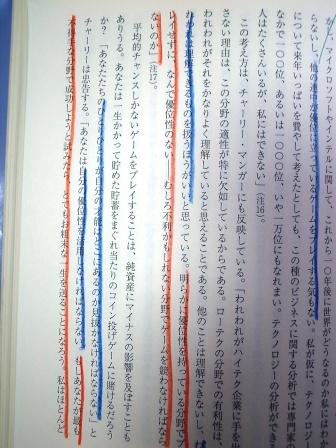 ハイテク
について、これから一〇年後の世界がどうなるか私は知
らないし、他の連中が優位に立っているゲームをプレイする気もない。私が仮に、テクノロジー
について来年いっぱいを費やして考えたとしても、この種のビジネスに関する分析では専門家の
なかで一〇〇位、あるいは一〇〇〇位、いや、一万位にもなれまい。テクノロジーの分析ができる
人はたくさんいるが、私にはできない」（注16）。
この考え方は、チャーリー・マンガーにも反映している。「われわれがハイテク企業に手を出
さない理由は、この分野の適性が特に欠如しているからである。ローテクの分野での有利性は、
われわれがそれをかなりよく理解していると思えることである。他のことは理解できないし、わ
れわれは理解できるものを扱うほうがいいと思っている。明らかに優位性を持っている分野でプ
レイせずに、なんで優位性のない――むしろ不利かもしれない分野でゲームを競わなければなら
ないのか」（注17）。
平均的チャンスしかないゲームをプレイすることは、純資産にマイナスの影響を及ぼすことも
ありうる。あなたは一生かかって貯めた貯蓄をまぐれ当たりのコイン投げゲームに賭けるだろう
か？「あなたたちのひとりひとりが自分の才能はどこにあるのか見抜かなければならない」と
チャーリーは忠告する。「あなたは自分の優位性を活用しなければならない。もしあなたが最も
不得手な分野で成功しようと試みたら、とてもお粗末な一生を送ることになろう。私はほとんど